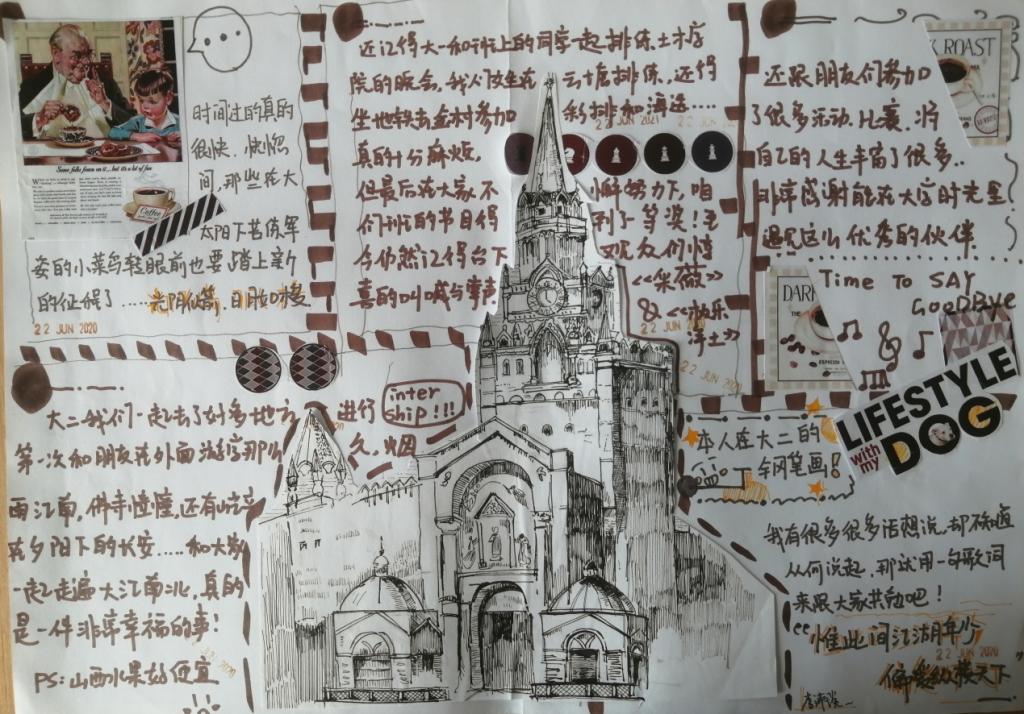 时间过的真的
很快，恍惚
间，那些在大
太阳下苦练军
姿的小菜鸟转眼前也要踏上新
的征程了……光阴似箭，日月如梭
22 JUN 2020
还记得大一和班上的同学一起排练土木店
院的晚会，我们女生在
云十店排练，还得
坐地铁去金村参加
彩排和海选....
真的十分麻烦，
但最后在大家不
懈努力下，咱
们班的节目得
到了一等奖！至
今仍然记得台下
观众们情
喜的叫喊与掌声
《采薇》
& 《快乐
22 JUN 2020
净土》
22 JUN 2020
还跟朋友们参加
了很多活动、比赛，将
自己的人生丰富了很多，
非常感谢能在大学时光里
遇见这么优秀的伙伴
Time To SAY
GooDBye
ROAST
DARK
ESPRESSO
Some folks frown on it... but it's a lot of fun
Coffee
LIFESTYLE
with my
DOG
大二我们一起去了好多地方进行
inter
ship!!!
第一次和朋友在外面游学，那久
烟
雨江南，佛寺憧憧，还有屹立
在夕阳下的长安.....和大家
一起走遍大江南北，真的
是一件非常幸福的事！
PS：山西水果好便宜
本人在大二的
钢笔画！
我有很多很多话想说，却不知道
从何说起，那就用一句歌词
来跟大家共勉吧！
“惟此间江湖年少
22 JUN 2020
偏爱纵横天下